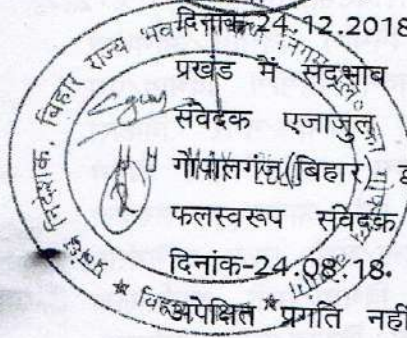 दिनांक-24.12.2018
प्रखंड में सद्भाव
संवेदक एजाजुल
गोपालगंज(बिहार)
फलस्वरूप संवेदक
दिनांक-24.08.18.
अपेक्षित प्रगति नहीं
प्रबंध निदेशक, बिहार राज्य भवन निगम लि०